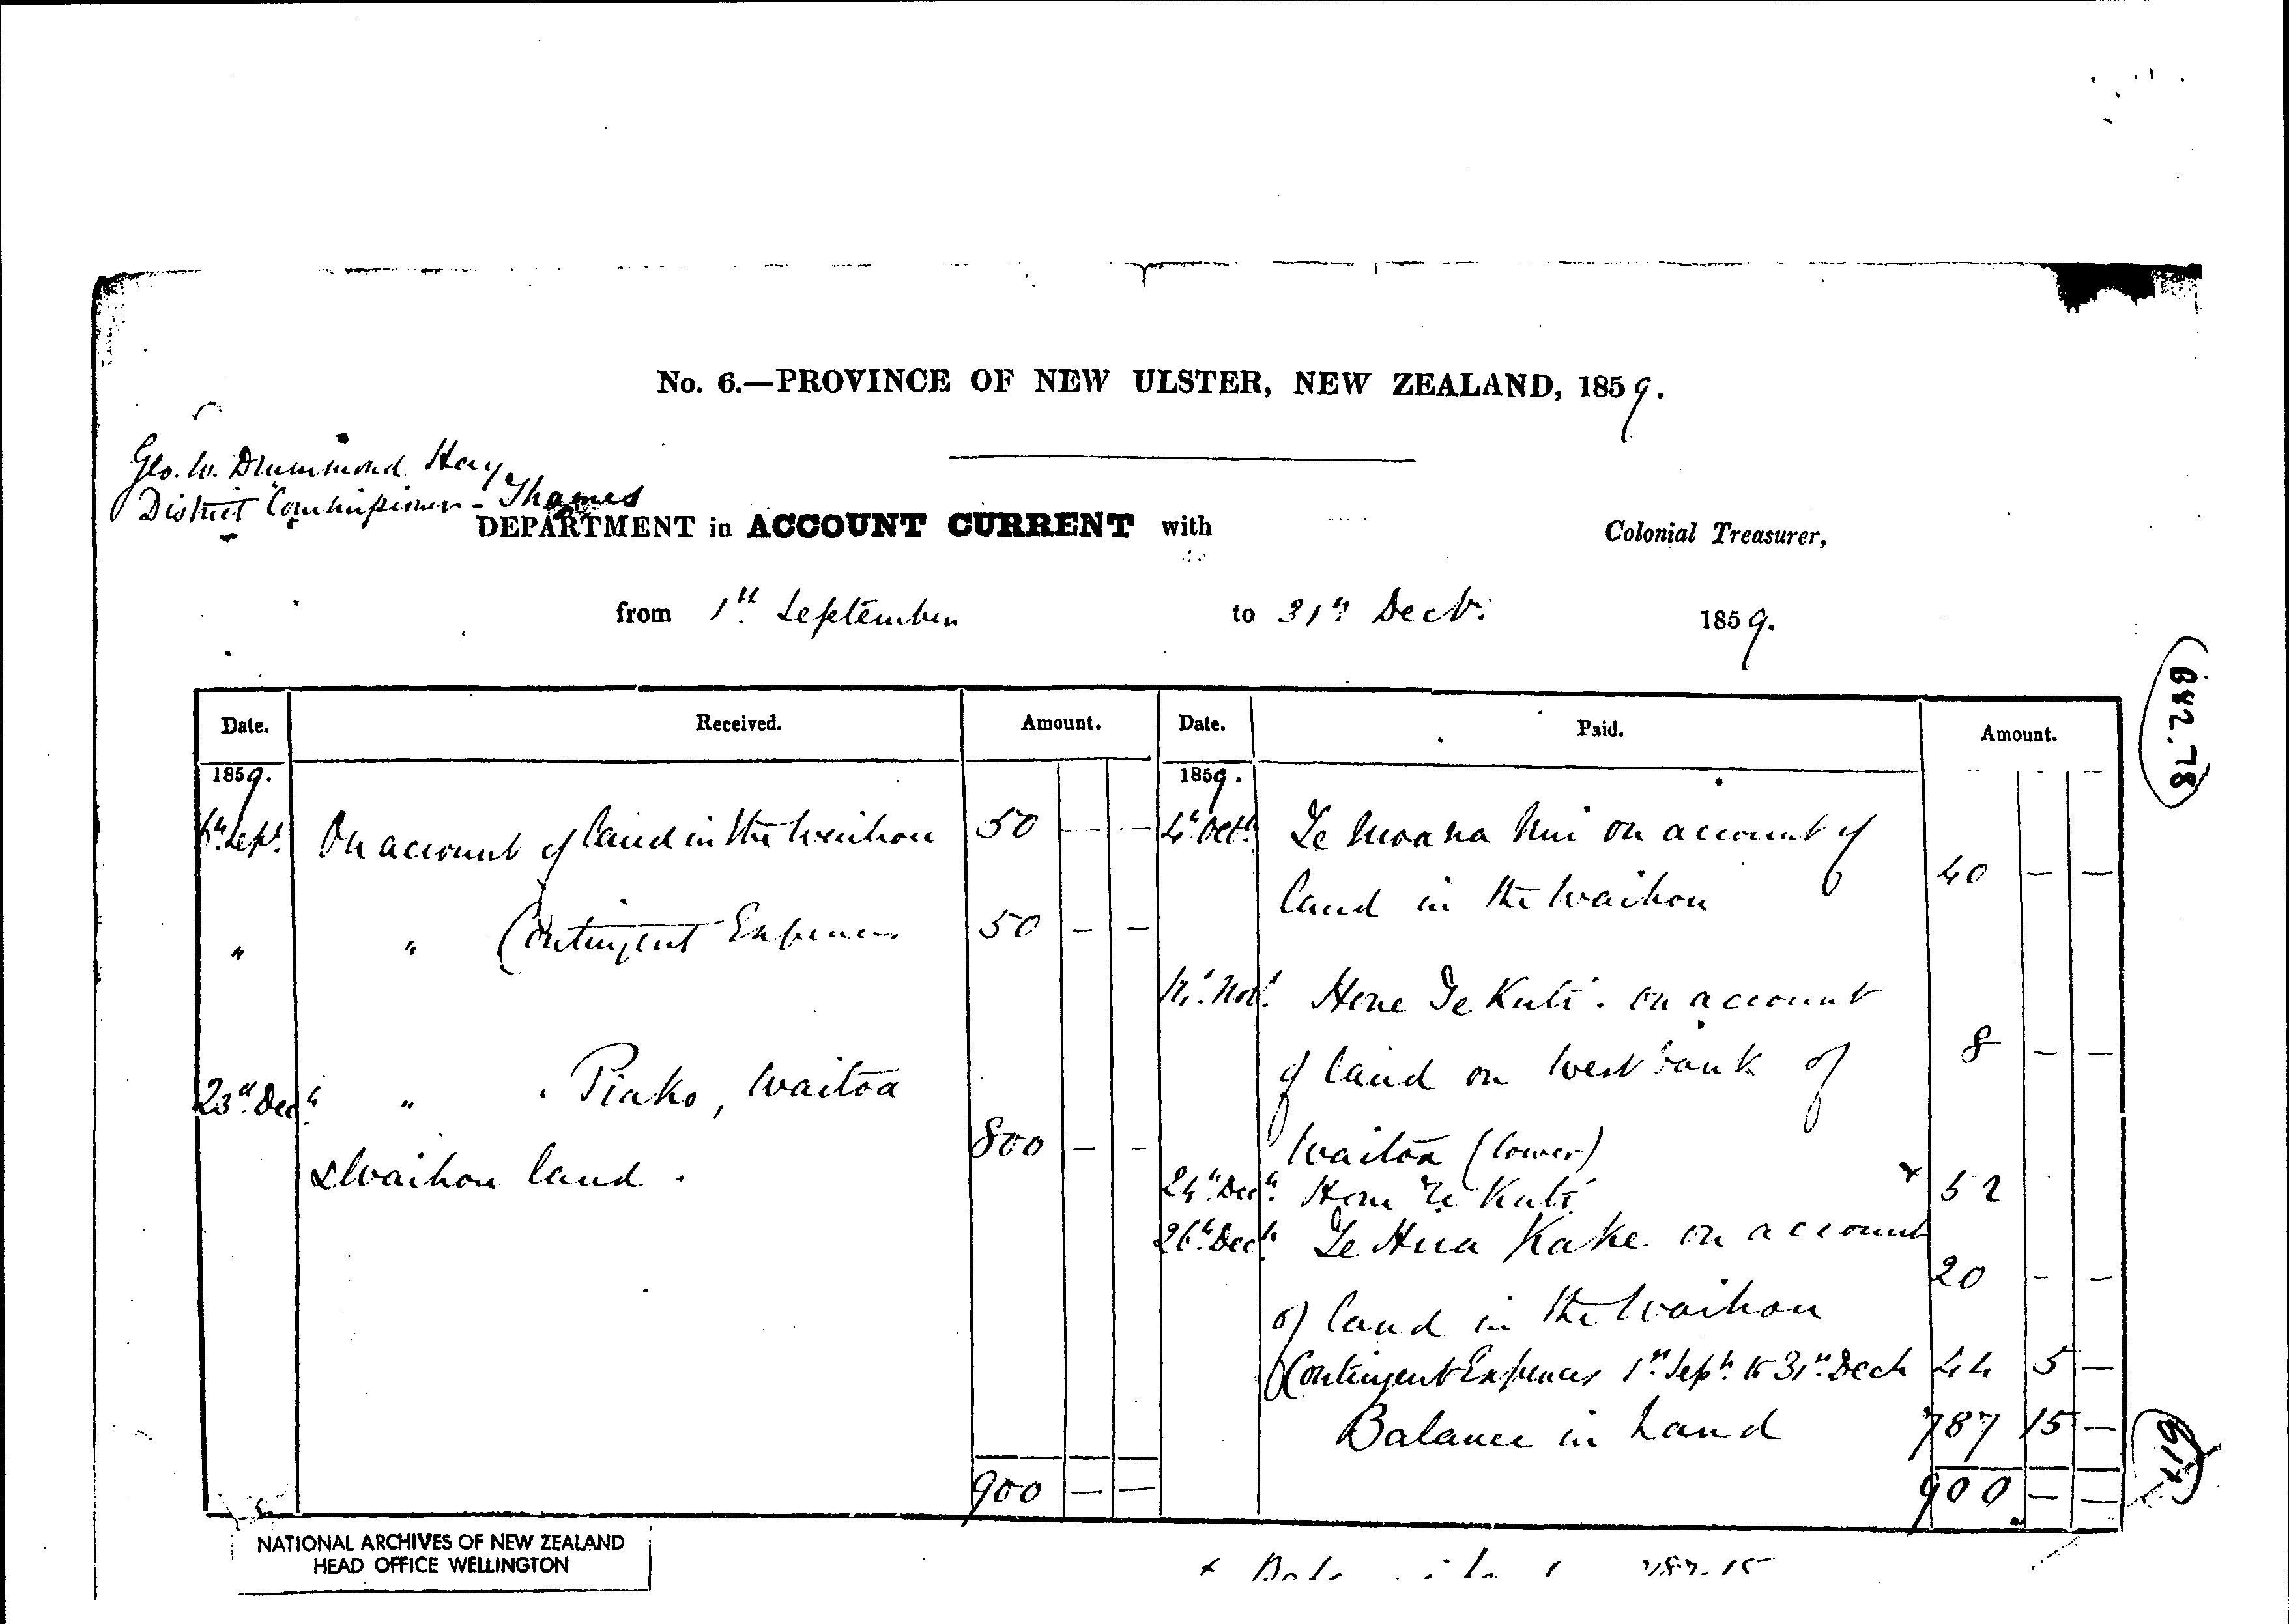 No. 6.—PROVINCE OF NEW ULSTER, NEW ZEALAND, 1859.
Geo. W. Drummond Hay
District Commissioner - Thames
DEPARTMENT in ACCOUNT CURRENT with Colonial Treasurer,
from 1st September to 31st Decbr. 1859.
Date. Received. Amount. Date. Paid. Amount.
1859. 1859.
6th Sept. On account of land in the Waihou 50 — — 4th Octr. Te Moana Nui on account of
land in the Waihou 40 — —
" " Contingent Expenses 50 — —
Novr. Hone Te Kuti. on account
of land on West bank of 8 — —
Waitoa (lower)
23rd Decr " " Piako, Waitoa
& Waihou land. 800 — —
24th Decr. Hone Te Kuti x 52
26th Decr. Te Hua Kake on account
of land in the Waihou 20 — —
Contingent Expenses 1st Sept. to 31st Decr 44 5 —
Balance in hand 787 15 —
900 — — 900 — —
B42.78
NATIONAL ARCHIVES OF NEW ZEALAND
HEAD OFFICE WELLINGTON
x 787.15